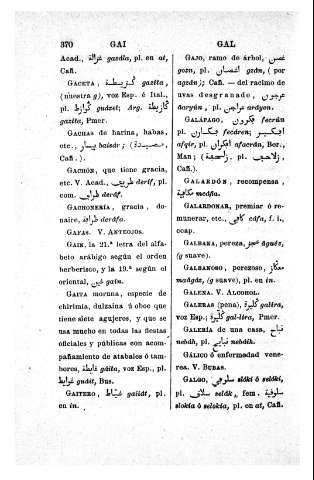 370 GAI GAL
Acad., غزالة gazála, pl. en at,
Cañ.
GACETA, گزيطة gazéta,
(nuestra g), voz Esp. é Ital.,
pl. گوازط guázet; Arg. گازيطة
gazita, Pmer.
GACHAS de harina, habas,
etc., بيسار baisár; (عصيدة,
Cañ.).
GACHÓN, que tiene gracia,
etc. V. Acad., ظريف deríf, pl.
com. ظراف deráf.
GACHONERÍA, gracia, do-
naire, ظرافة deráfa.
GAFAS. V. ANTEOJOS.
GAIN, la 21.ª letra del alfa-
beto arábigo según el orden
berberisco, y la 19.ª según el
oriental, غين gain.
GAITA moruna, especie de
chirimía, dulzaina ú oboe que
tiene siete agujeros, y que se
usa mucho en todas las fiestas
oficiales y públicas con acom-
pañamiento de atabales ó tam-
bores, غايطة gáita, voz Esp., pl.
غوايط guáit, Bus.
GAITERO, غياط gaiiát, pl.
en in.
GAJO, ramo de árbol, غصن
gozn, pl. اغصان gzán, (por
agzán); Cañ. — del racimo de
uvas desgranado, عرجون
áaryún, pl. عراجن aráyen.
GALÁPAGO, فكرون fecrún
pl. فكارن fecáren;
afqir, pl. afacrán, Bor.,
Man; (سلحفاة, pl. زلاحف,
Cañ.).
GALARDÓN, recompensa,
مكافية mcáfia.
GALARDONAR, premiar ó re-
munerar, etc., كافى cáfa, f. i.,
ccap.
GALBANA, pereza, عجز
(g suave).
GALBANOSO, perezoso, معكاز
maâgáz, (g suave), pl. en in.
GALENA. V. ALCOHOL.
GALERAS (pena), گليرة galéra,
voz Esp.; گليرة gal-léra, Pmer.
GALERÍA de una casa, نباح
nebáh, pl. نبايح nebáih.
GÁLICO ó enfermedad vené-
rea. V. BUBAS.
GALGO, سلوقي slóki ó selóki,
pl. سلاق selák, fem. سلوقية
slokía ó selokía, pl. en at, Cañ.